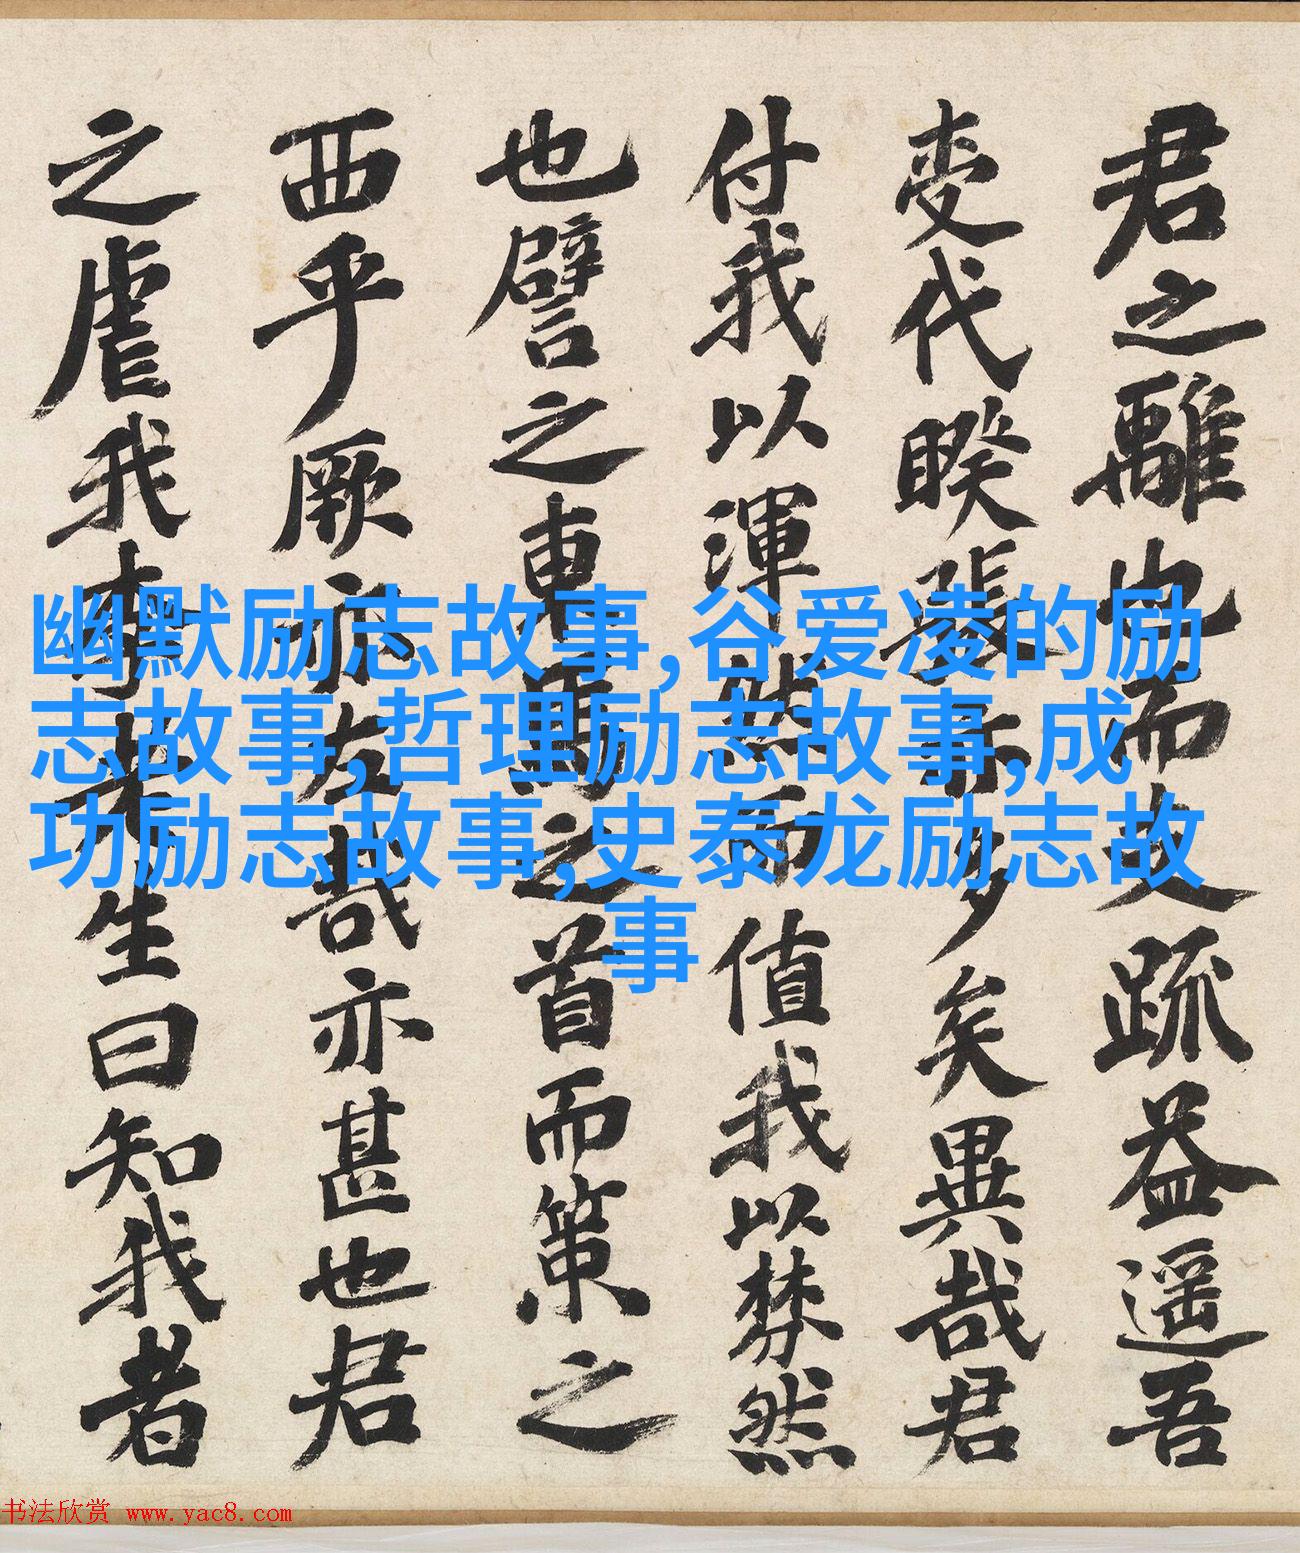 君之離也而疏益遥吾
代睽張多矣異哉君
付我以渾然而值我以棼然
也譬之東馬之首而策之
西乎厥亦左哉亦甚也君
之虐我先生曰知我者
幽默励志故事,谷爱凌的励
志故事,哲理励志故事,成
功励志故事,史泰龙励志故
事
书法欣赏 www.yac8.com